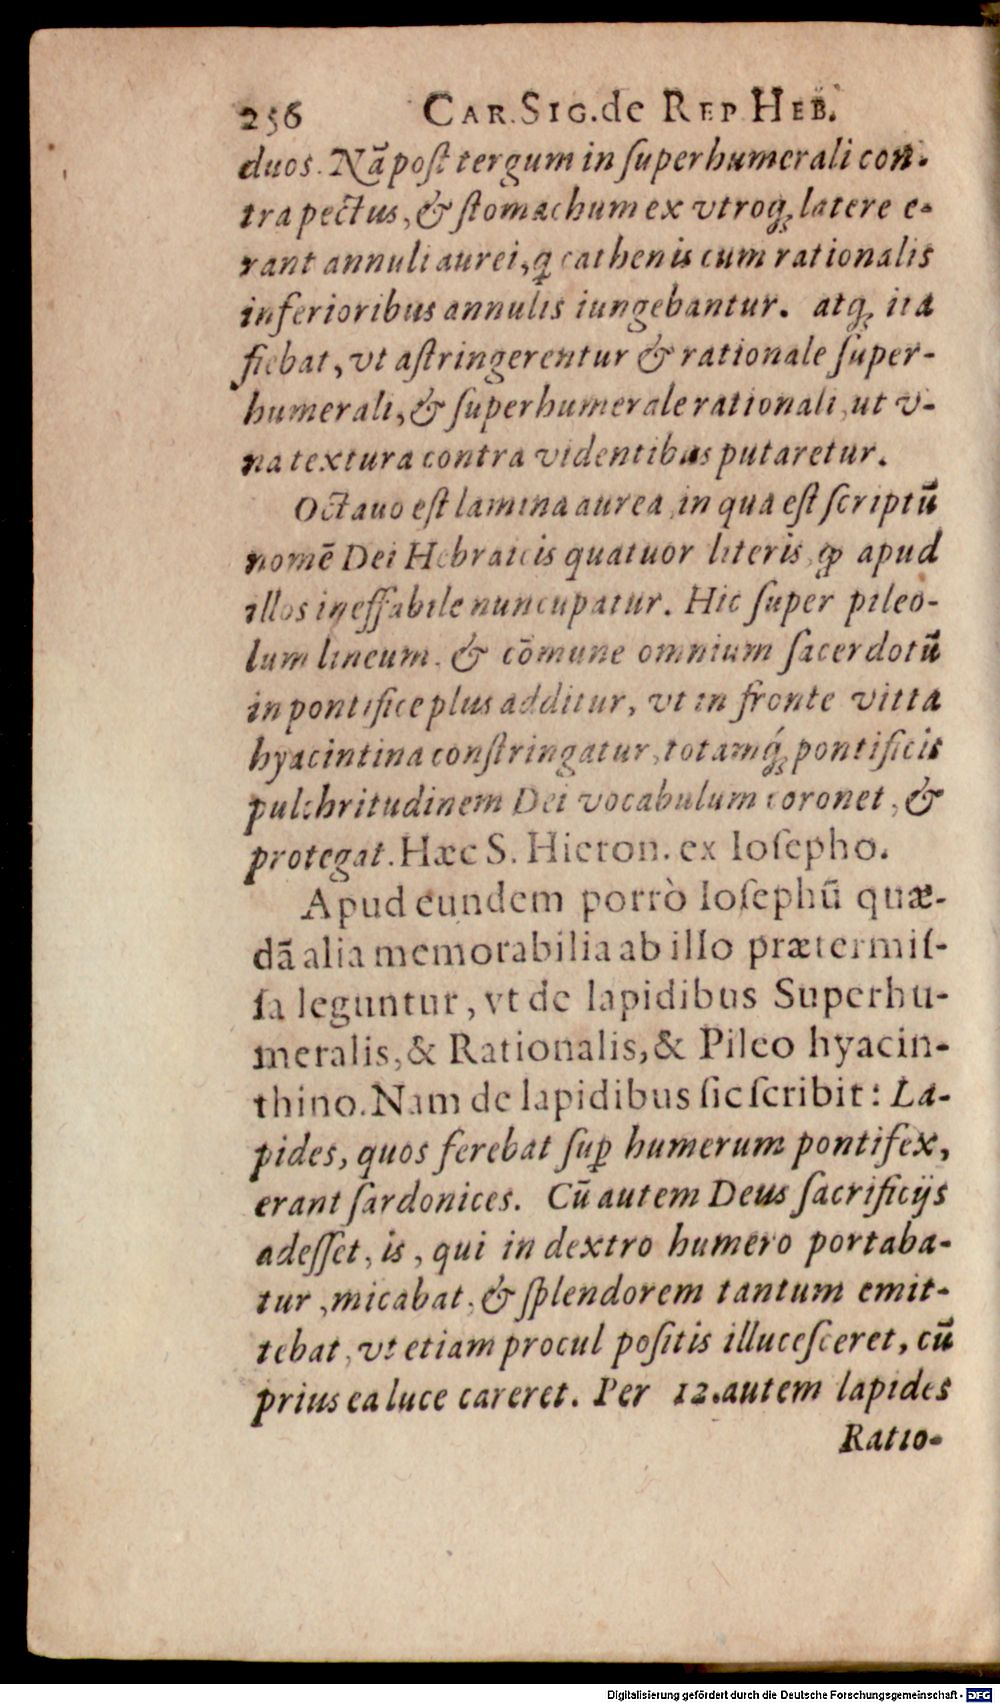 256 CAR. SIG. de REP. HEB.
duos. Nā poſt tergum in ſuperhumerali con-
tra pectus, & ſtomachum ex vtroq; latere e-
rant annuli aurei, q̄ cathenis cum rationalis
inferioribus annulis iungebantur. atq; ita
fiebat, vt aſtringerentur & rationale ſuper-
humerali, & ſuperhumerale rationali, ut v-
na textura contra videntibus putaretur.
Octauo eſt lamina aurea, in qua eſt ſcriptū
nomē Dei Hebraicis quatuor literis, ꝙ apud
illos ineffabile nuncupatur. Hic ſuper pileo-
lum lineum, & cōmune omnium ſacerdotū
in pontifice plus additur, vt in fronte vitta
hyacintina conſtringatur, totamq́; pontificis
pulchritudinem Dei vocabulum coronet, &
protegat. Hæc S. Hieron. ex Ioſepho.
Apud eundem porrò Ioſephū quæ-
dā alia memorabilia ab illo prætermiſ-
ſa leguntur, vt de lapidibus Superhu-
meralis, & Rationalis, & Pileo hyacin-
thino. Nam de lapidibus ſic ſcribit: La-
pides, quos ferebat ſuꝑ humerum pontifex,
erant ſardonices. Cū autem Deus ſacrificijs
adeſſet, is, qui in dextro humero portaba-
tur, micabat, & ſplendorem tantum emit-
tebat, vt etiam procul poſitis illuceſceret, cū
prius ea luce careret. Per 12. autem lapides
Ratio-
Digitalisierung gefördert durch die Deutsche Forschungsgemeinschaft - DFG